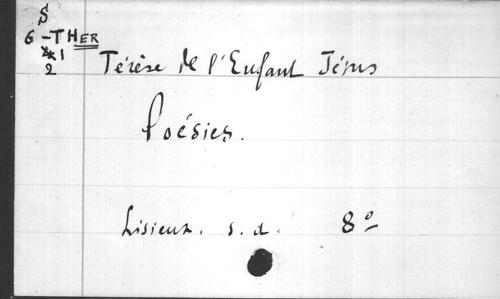 S
6-THER
1
2
Térèse de l'Enfant Jésus
Poésies.
Lisieux. s. d. 8º